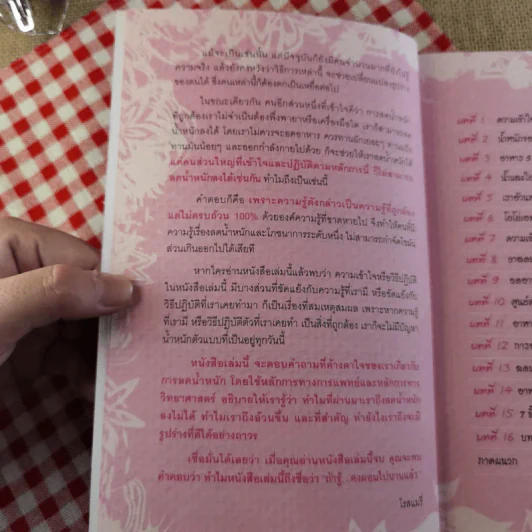 แม้จะเป็นเช่นนั้น แต่ปัจจุบันก็ยังมีคนจำนวนมากที่ยังไม่รู้
ความจริง แล้วยังคงหวังว่าวิธีการเหล่านี้ จะช่วยเปลี่ยนแปลงรูปร่าง
ของตนได้ ซึ่งคนเหล่านี้ก็ต้องตกเป็นเหยื่อต่อไป
ในขณะเดียวกัน คนอีกส่วนหนึ่งที่เข้าใจดีว่า การลดน้ำหนัก
ที่ถูกต้องเราไม่จำเป็นต้องพึ่งพายาหรือเครื่องมือใด เราก็สามารถลด
น้ำหนักลงได้ โดยเราไม่ควรจะอดอาหาร ควรทานผักเยอะๆ
ทานมันน้อยๆ และออกกำลังกายไปด้วย ก็จะช่วยให้เราลดน้ำหนักได้
แต่คนส่วนใหญ่ที่เข้าใจและปฏิบัติตามหลักการนี้ ก็ไม่สามารถ
ลดน้ำหนักลงได้เช่นกัน ทำไมถึงเป็นเช่นนี้
คำตอบก็คือ เพราะความรู้ดังกล่าวเป็นความรู้ที่ถูกต้อง
แต่ไม่ครบถ้วน 100% ด้วยองค์ความรู้ที่ขาดหายไป จึงทำให้คนที่มี
ความรู้เรื่องลดน้ำหนักและโภชนาการระดับหนึ่ง ไม่สามารถกำจัดไขมัน
ส่วนเกินออกไปได้เสียที
หากใครอ่านหนังสือเล่มนี้แล้วพบว่า ความเข้าใจหรือวิธีปฏิบัติ
ในหนังสือเล่มนี้ มีบางส่วนที่ขัดแย้งกับความรู้ที่เรามี หรือขัดแย้งกับ
วิธีปฏิบัติที่เราเคยทำมา ก็เป็นเรื่องที่สมเหตุสมผล เพราะหากความรู้
ที่เรามี หรือวิธีปฏิบัติตัวที่เราเคยทำ เป็นสิ่งที่ถูกต้อง เราก็จะไม่มีปัญหา
น้ำหนักตัวแบบที่เป็นอยู่ทุกวันนี้
หนังสือเล่มนี้ จะตอบคำถามที่ค้างคาใจของเราเกี่ยวกับ
การลดน้ำหนัก โดยใช้หลักการทางการแพทย์และหลักการทาง
วิทยาศาสตร์ อธิบายให้เรารู้ว่า ทำไมที่ผ่านมาเราถึงลดน้ำหนัก
ลงไม่ได้ ทำไมเราถึงอ้วนขึ้น และที่สำคัญ ทำยังไงเราถึงจะมี
รูปร่างที่ดีได้อย่างถาวร
เชื่อมั่นได้เลยว่า เมื่อคุณอ่านหนังสือเล่มนี้จบ คุณจะพบ
คำตอบว่า ทำไมหนังสือเล่มนี้ถึงชื่อว่า "ถ้ารู้...คงผอมไปนานแล้ว"
โรสแมรี่
บทที่ 1
บทที่ 2
บทที่ 3
บทที่ 4
บทที่ 5
บทที่ 6
บทที่ 7
บทที่ 8
บทที่ 9
บทที่ 10
บทที่ 11
บทที่ 12
บทที่ 13
บทที่ 14
บทที่ 15
บทที่ 16
ภาคผนวก